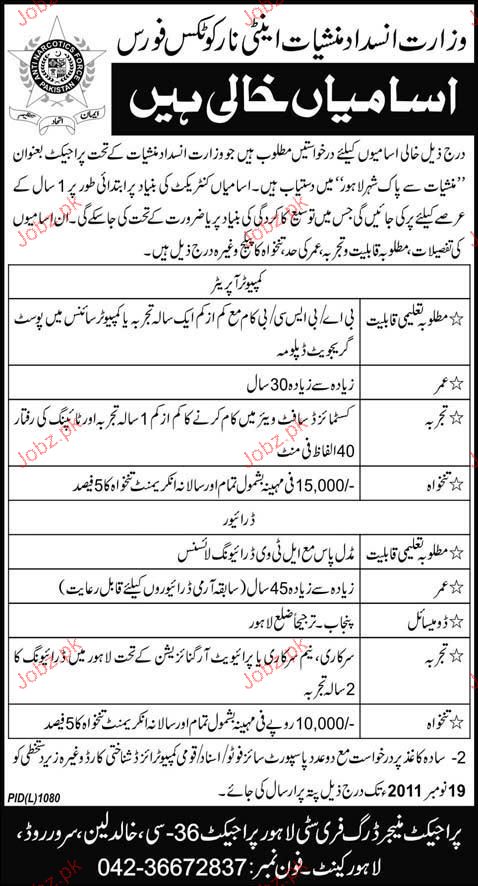 وزارت انسداد منشیات اینٹی نارکوٹکس فورس
ANTI NARCOTICS FORCE
PAKISTAN
ایمان اتحاد تنظیم
اسامیاں خالی ہیں
درج ذیل خالی اسامیوں کیلئے درخواستیں مطلوب ہیں جو وزارت انسداد منشیات کے تحت پراجیکٹ بعنوان
”منشیات سے پاک شہر لاہور“ میں دستیاب ہیں۔ اسامیاں کنٹریکٹ کی بنیاد پر ابتدائی طور پر 1 سال کے
عرصے کیلئے پر کی جائیں گی جس میں توسیع کارکردگی کی بنیاد پر یا ضرورت کے تحت کی جا سکے گی۔ ان اسامیوں
کی تفصیلات، مطلوبہ قابلیت و تجربہ، عمر کی حد، تنخواہ کا پیکج وغیرہ درج ذیل ہیں۔
کمپیوٹر آپریٹر
☆ مطلوبہ تعلیمی قابلیت بی اے/ بی ایس سی/ بی کام مع کم از کم ایک سالہ تجربہ یا کمپیوٹر سائنس میں پوسٹ
گریجویٹ ڈپلومہ
☆ عمر زیادہ سے زیادہ 30 سال
☆ تجربہ کسٹمائزڈ سافٹ ویئر میں کام کرنے کا کم از کم 1 سالہ تجربہ اور ٹائپنگ کی رفتار
40 الفاظ فی منٹ
☆ تنخواہ 15,000/- فی مہینہ بشمول تمام اور سالانہ انکریمنٹ تنخواہ کا 5 فیصد
ڈرائیور
☆ مطلوبہ تعلیمی قابلیت مڈل پاس مع ایل ٹی وی ڈرائیونگ لائسنس
☆ عمر زیادہ سے زیادہ 45 سال (سابقہ آرمی ڈرائیوروں کیلئے قابل رعایت)
☆ ڈومیسائل پنجاب۔ ترجیحاً ضلع لاہور
☆ تجربہ سرکاری، نیم سرکاری یا پرائیویٹ آرگنائزیشن کے تحت لاہور میں ڈرائیونگ کا
2 سالہ تجربہ
☆ تنخواہ 10,000/- روپے فی مہینہ بشمول تمام اور سالانہ انکریمنٹ تنخواہ کا 5 فیصد
2- سادہ کاغذ پر درخواست مع دو عدد پاسپورٹ سائز فوٹو/ اسناد/ قومی کمپیوٹرائزڈ شناختی کارڈ وغیرہ زیر دستخطی کو
19 نومبر 2011ء تک درج ذیل پتہ پر ارسال کی جائے۔
PID(L)1080
پراجیکٹ منیجر ڈرگ فری سٹی لاہور پراجیکٹ 36-سی، خالد لین، سرور روڈ،
لاہور کینٹ۔ فون نمبر: 042-36672837
Jobz.pk